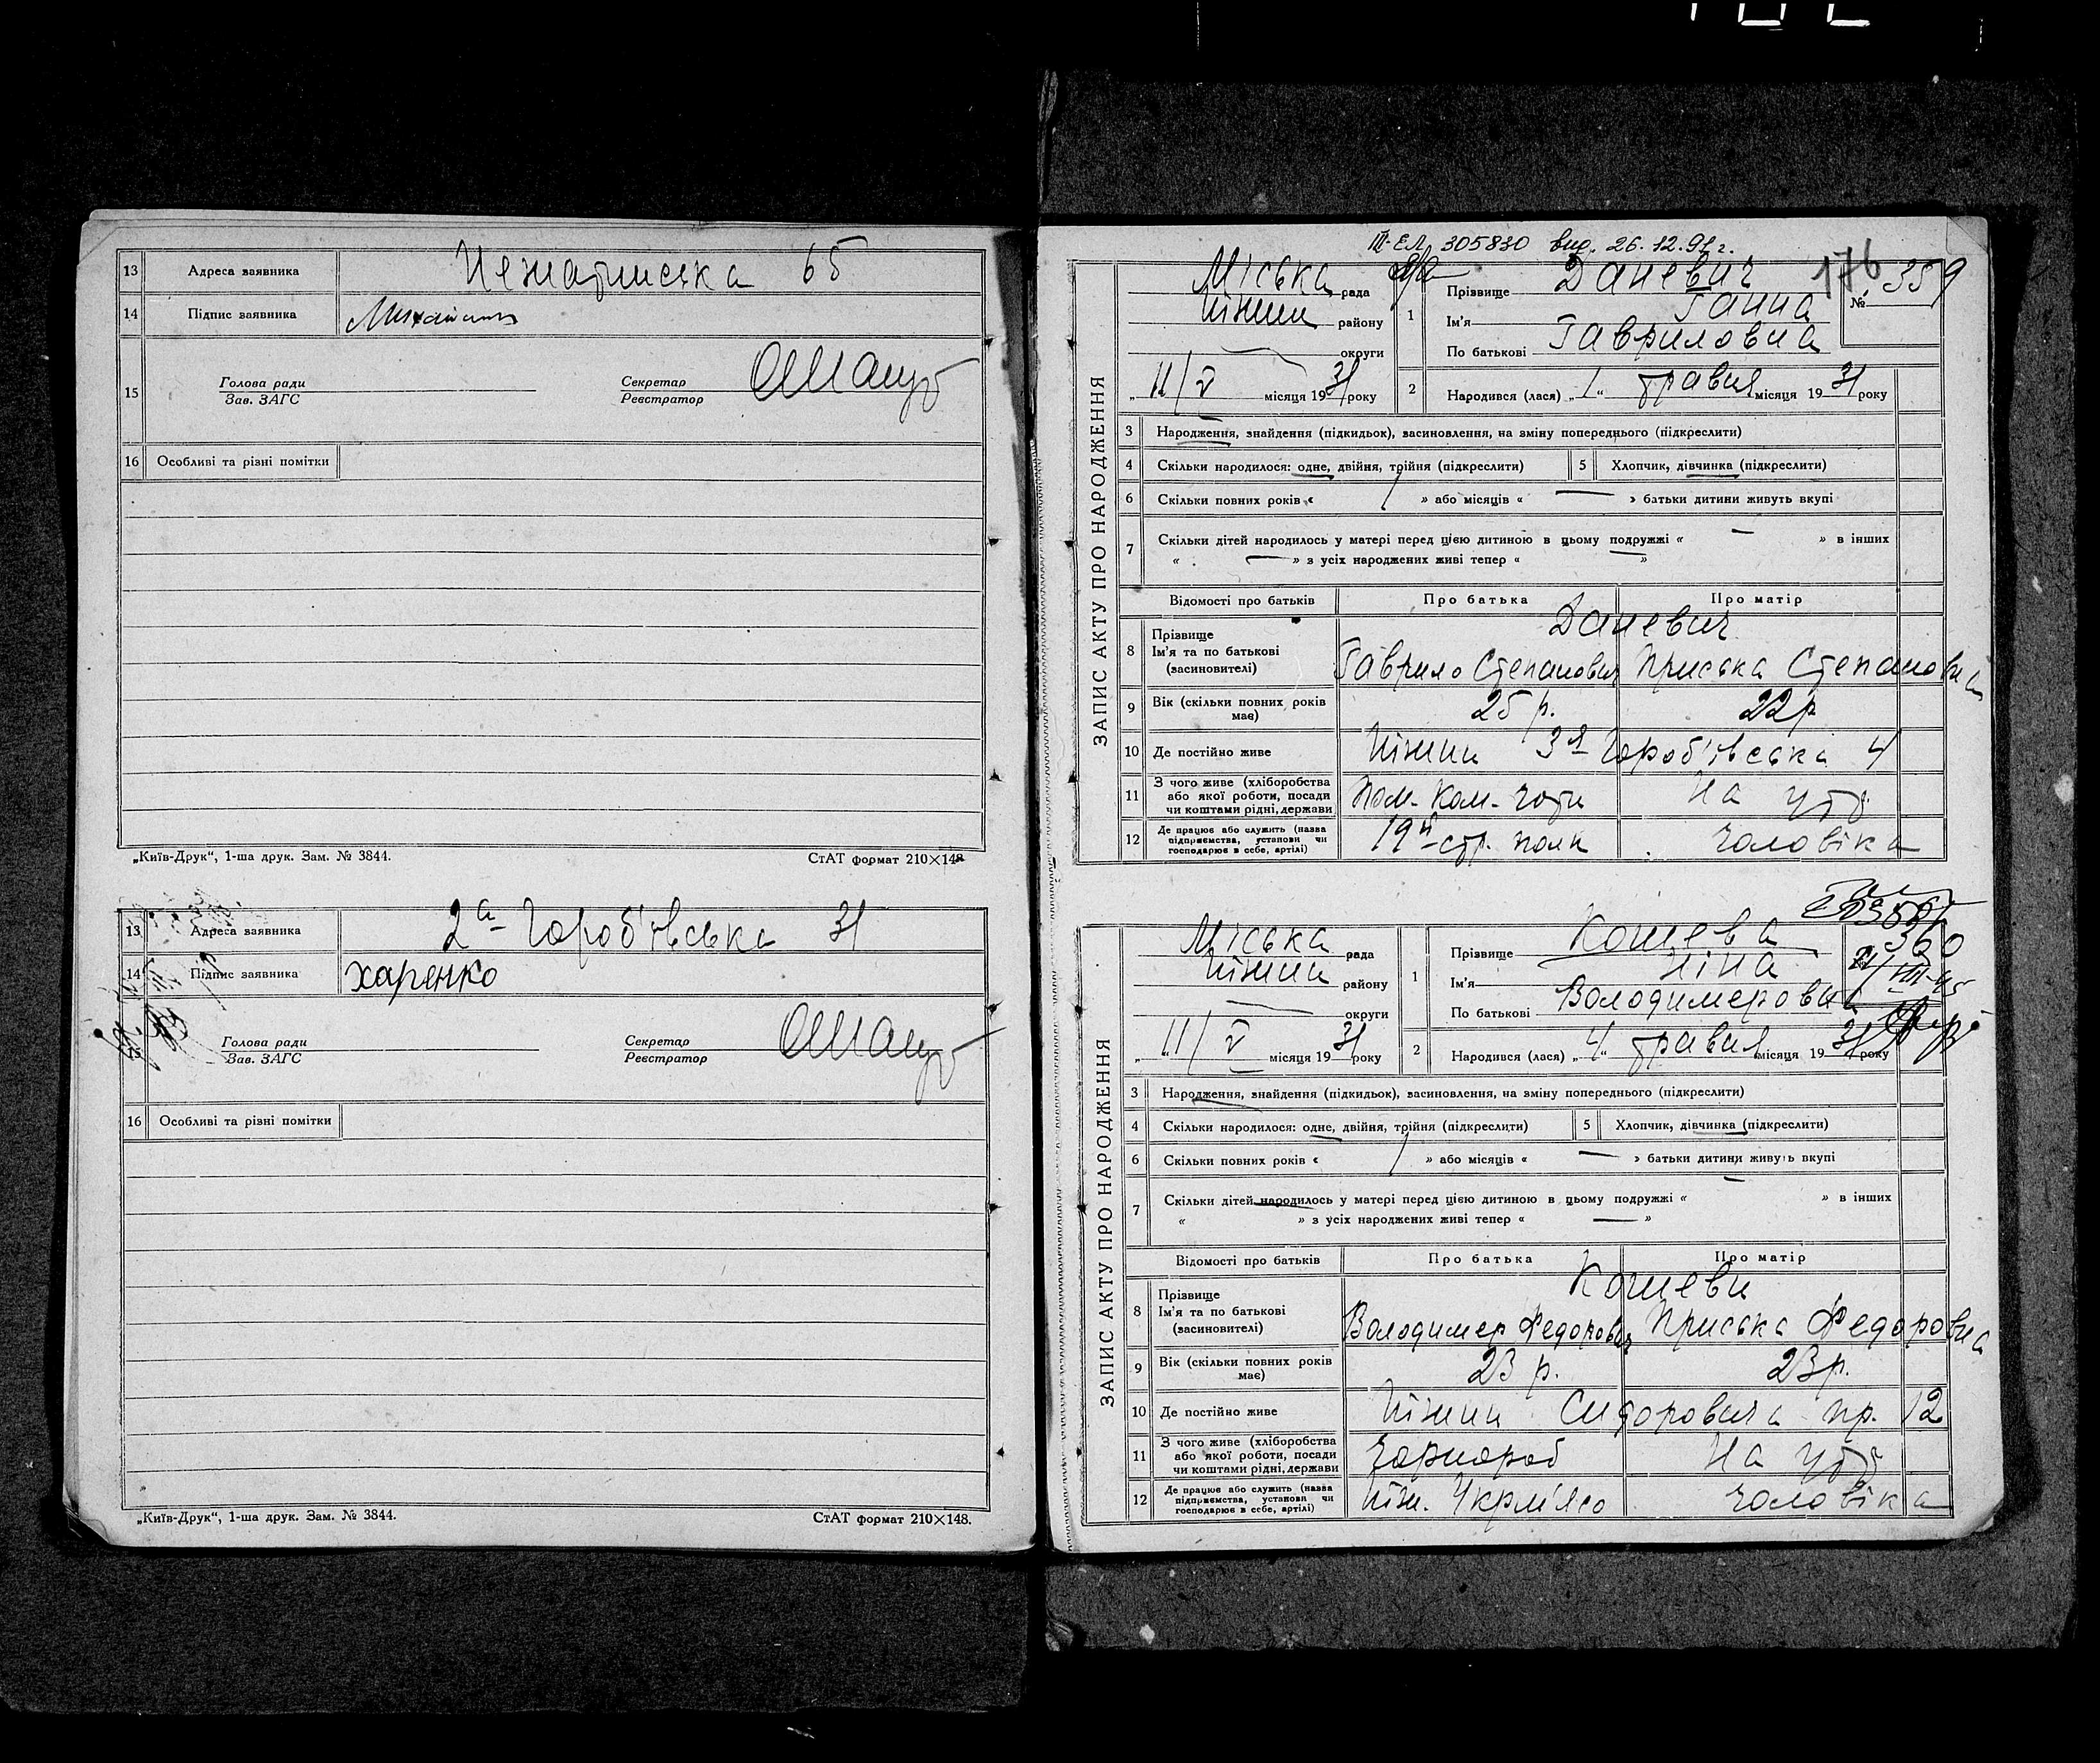 13 Адреса заявника 65
14 Підпис заявника
15 Голова ради Секретар
Зав. ЗАГС Реєстратор
16 Особливі та різні помітки
„Київ-Друк“, 1-ша друк. Зам. № 3844. СтАТ формат 210×148
13 Адреса заявника 2а Гороб'ївська 31
14 Підпис заявника харенко
Голова ради Секретар
Зав. ЗАГС Реєстратор
16 Особливі та різні помітки
„Київ-Друк“, 1-ша друк. Зам. № 3844. СтАТ формат 210×148.
III-ЕЛ 305830 вид. 26.12.91г.
176
ЗАПИС АКТУ ПРО НАРОДЖЕННЯ
Міська рада
Ніжин району
округи
„ 11/V місяця 1931 року
1 Прізвище Даневич № 359
Ім'я Ганна
По батькові Гавриловна
2 Народився (лася) „1“ травня місяця 1931 року
3 Народження, знайдення (підкидьок), васиновлення, на зміну попереднього (підкреслити)
4 Скільки народилося: одне, двійня, трійня (підкреслити) 5 Хлопчик, дівчинка (підкреслити)
6 Скільки повних років « 1 » або місяців « — » батьки дитини живуть вкупі
7 Скільки дітей народилось у матері перед цією дитиною в цьому подружжі « — » в інших
« — » з усіх народжених живі тепер « — »
Відомості про батьків Про батька Про матір
8 Прізвище Даневич
Ім'я та по батькові Гаврило Степанович Приська Степановна
(васиновителі)
9 Вік (скільки повних років має) 25 р. 22 р
10 Де постійно живе Ніжин 3я Гороб'ївська 4
11 З чого живе (хліборобства Пом-Ком-роти На утр.
або якої роботи, посади
чи коштами рідні, держави
12 Де працює або служить (назва 19й стр. полк чоловіка
підприємства, установи чи
господарює в себе, артілі)
ЗАПИС АКТУ ПРО НАРОДЖЕННЯ
Міська рада
Ніжин району
округи
„ 11/V місяця 1931 року
1 Прізвище Кошева 360
Ім'я Ніна
По батькові Володимеровна
2 Народився (лася) „4“ травня місяця 1931 року
3 Народження, знайдення (підкидьок), васиновлення, на зміну попереднього (підкреслити)
4 Скільки народилося: одне, двійня, трійня (підкреслити) 5 Хлопчик, дівчинка (підкреслити)
6 Скільки повних років « 1 » або місяців « — » батьки дитини живуть вкупі
7 Скільки дітей народилось у матері перед цією дитиною в цьому подружжі « — » в інших
« » з усіх народжених живі тепер « — »
Відомості про батьків Про батька Про матір
8 Прізвище Кошеви
Ім'я та по батькові Володимер Федорович Приська Федоровна
(васиновителі)
9 Вік (скільки повних років має) 23 р. 23 р.
10 Де постійно живе Ніжин Сидоровича пр. 12
11 З чого живе (хліборобства Чорнороб На утр
або якої роботи, посади
чи коштами рідні, держави
12 Де працює або служить (назва Ніж. Укрм'ясо чоловіка
підприємства, установи чи
господарює в себе, артілі)